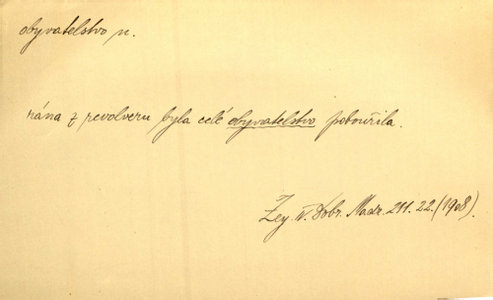 obyvatelstvo n.
rána z revolveru byla celé obyvatelstvo pobouřila.
Zey. V. Dobr. Madr. 211. 22. (1908).